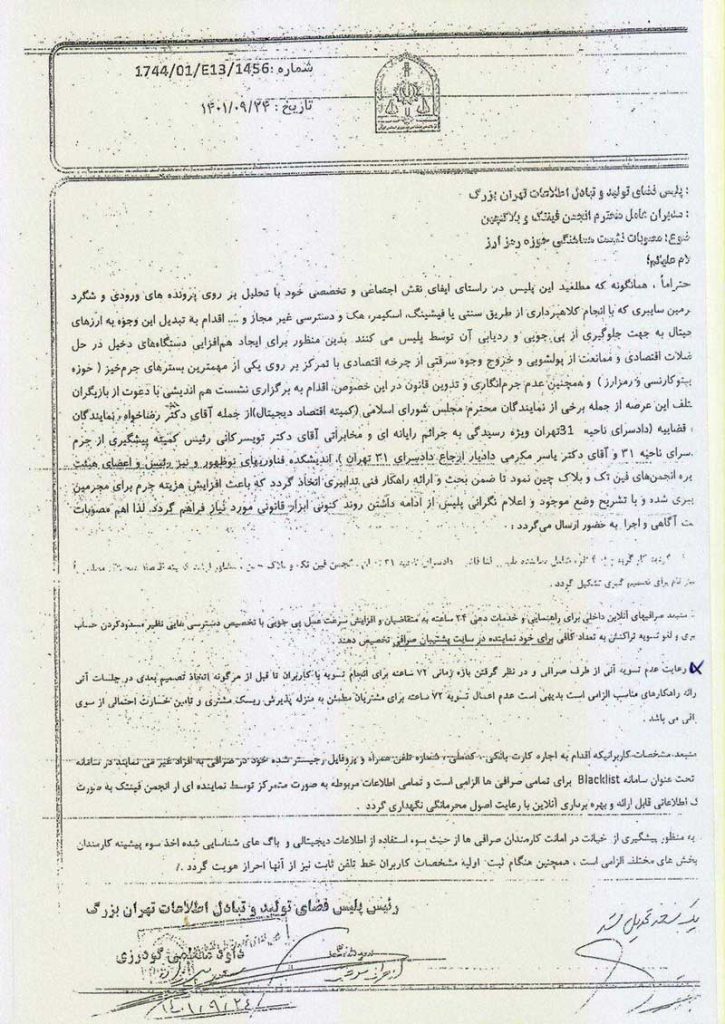 شماره :1744/01/E13/1456
تاریخ : ۱۴۰۱/۰۹/۲۴
: پلیس فضای تولید و تبادل اطلاعات تهران بزرگ
: مدیران عامل محترم انجمن فینتک و بلاکچین
ضوع: مصوبات نشست هماهنگی حوزه رمز ارز
لام علیکم؛
حتراماً ، همانگونه که مطلعید این پلیس در راستای ایفای نقش اجتماعی و تخصصی خود با تحلیل بر روی پرونده های ورودی و شگرد
رمین سایبری که با انجام کلاهبرداری از طریق سنتی یا فیشینگ، اسکیمر، هک و دسترسی غیر مجاز و .... اقدام به تبدیل این وجوه به ارزهای
جیتال به جهت جلوگیری از پی جویی و ردیابی آن توسط پلیس می کنند. بدین منظور برای ایجاد هم‌افزایی دستگاه‌های دخیل در حل
ضلات اقتصادی و ممانعت از پولشویی و خروج وجوه سرقتی از چرخه اقتصادی با تمرکز بر روی یکی از مهمترین بسترهای جرم‌خیز ( حوزه
یپتوکارنسی و رمزارز ) و همچنین عدم جرم‌انگاری و تدوین قانون در این خصوص، اقدام به برگزاری نشست هم اندیشی با دعوت از بازیگران
ختلف این عرصه از جمله برخی از نمایندگان محترم مجلس شورای اسلامی (کمیته اقتصاد دیجیتال)از جمله آقای دکتر رضاخواه، نمایندگان
قضاییه (دادسرای ناحیه 31تهران ویژه رسیدگی به جرائم رایانه ای و مخابراتی آقای دکتر تویسرکانی رئیس کمیته پیشگیری از جرم
سرای ناحیه ۳۱ و آقای دکتر یاسر مکرمی دادیار ارجاع دادسرای ۳۱ تهران )، اندیشکده فناوریهای نوظهور و نیز رئیس و اعضای هیئت
یره انجمن‌های فین تک و بلاک چین نمود تا ضمن بحث و ارائه راهکار فنی تدابیری اتخاذ گردد که باعث افزایش هزینه جرم برای مجرمین
یبری شده و با تشریح وضع موجود و اعلام نگرانی پلیس از ادامه داشتن روند کنونی ابزار قانونی مورد نیاز فراهم گردد. لذا اهم مصوبات
ت آگاهی و اجرا به حضور ارسال می‌گردد :
دادسرای ناحیه ۳۱ انجمن فین تک و بلاک چین
برای تصمیم گیری تشکیل گردد .
صرافیهای آنلاین داخلی برای راهنمایی و خدمات دهی ۲۴ ساعته به متقاضیان و افزایش سرعت عمل پی جویی با تخصیص دسترسی هایی نظیر مسدودکردن حساب
بری و لغو تسویه تراکنش به تعداد کافی برای خود نماینده در سایت پشتیبان صرافی تخصیص دهند
رعایت عدم تسویه آنی از طرف صرافی و در نظر گرفتن بازه زمانی ۷۲ ساعته برای انجام تسویه با کاربران تا قبل از هرگونه اتخاذ تصمیم بعدی در جلسات آتی
رائه راهکارهای مناسب الزامی است بدیهی است عدم اعمال تسویه ۷۲ ساعته برای مشتریان مطمئن به منزله پذیرش ریسک مشتری و تامین خسارت احتمالی از سوی
افی می باشد .
مشخصات کاربرانیکه اقدام به اجاره کارت بانکی ، کدملی ، شماره تلفن همراه و پروفایل رجیستر شده خود در صرافی به افراد غیر می نمایند در سامانه
تحت عنوان سامانه Blacklist برای تمامی صرافی ها الزامی است و تمامی اطلاعات مربوطه به صورت متمرکز توسط نماینده ای از انجمن فینتک به صورت
ک اطلاعاتی قابل ارائه و بهره برداری آنلاین با رعایت اصول محرمانگی نگهداری گردد .
به منظور پیشگیری از خیانت در امانت کارمندان صرافی ها از حیث سوء استفاده از اطلاعات دیجیتالی و باگ های شناسایی شده اخذ سوء پیشینه کارمندان
بخش های مختلف الزامی است ، همچنین هنگام ثبت اولیه مشخصات کاربران خط تلفن ثابت نیز از آنها احراز هویت گردد ./
رئیس پلیس فضای تولید و تبادل اطلاعات تهران بزرگ
داود معظمی گودرزی
یک نسخه تحویل شد
۱۴۰۱/۹/۲۴